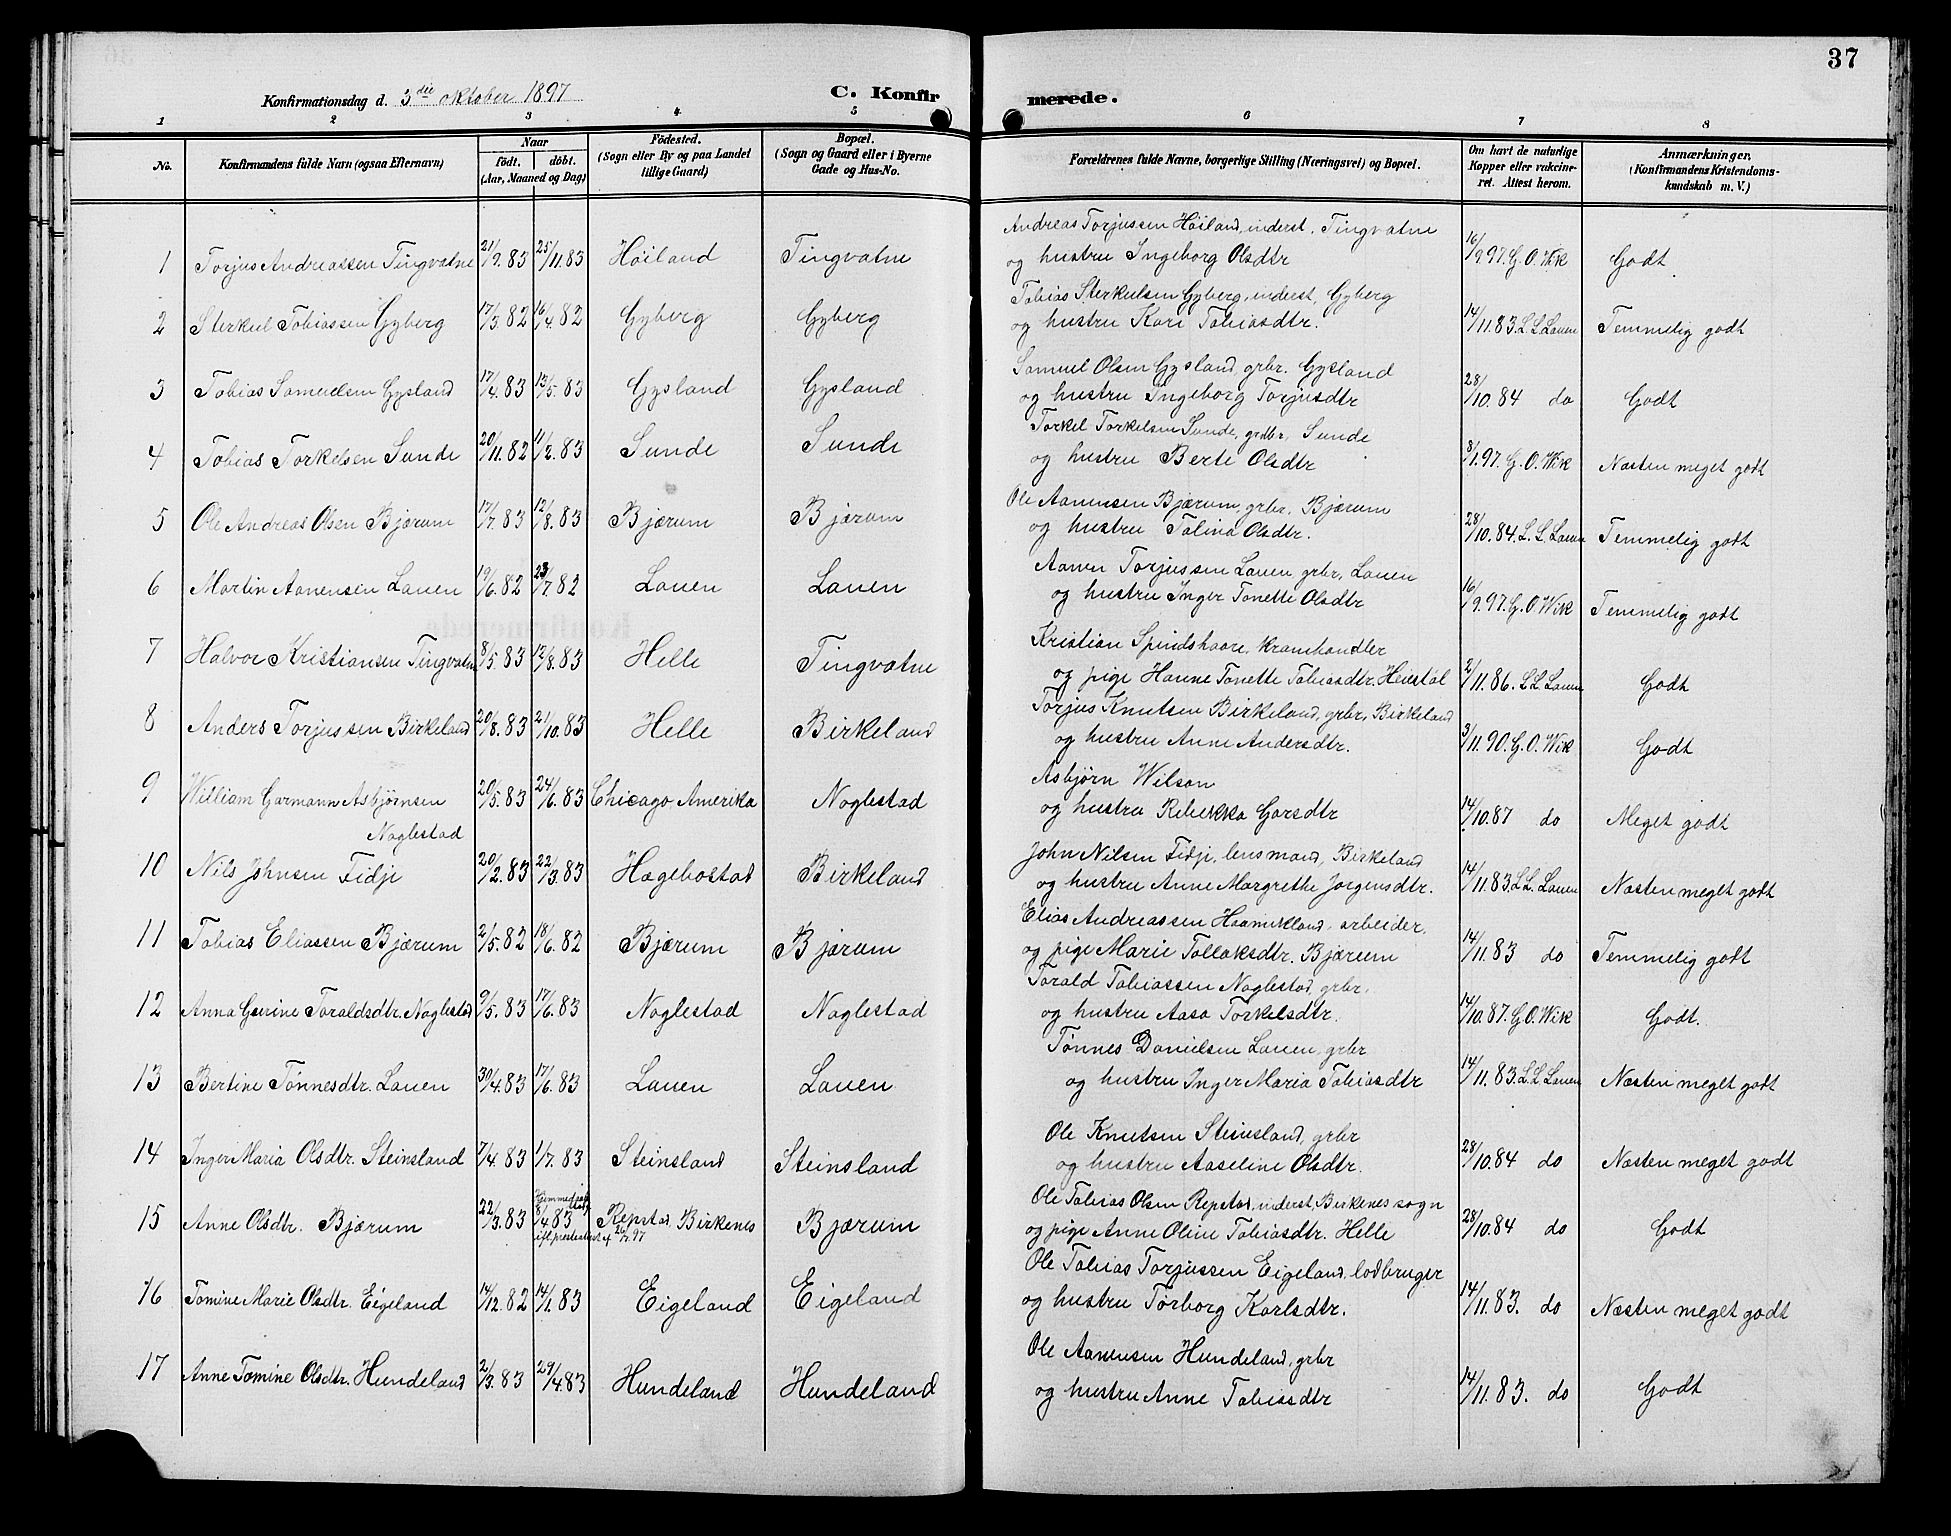 37
Konfirmationsdag d. 3die oktober 1897 C. Konfirmerede.
1 2 3 4 5 6 7 8
No. Konfirmandens fulde Navn (ogsaa Efternavn) Naar födt. döbt. (Aar, Maaned og Dag) Födested. (Sogn eller By og paa Landet tillige Gaard) Bopæl. (Sogn og Gaard eller i Byerne Gade og Hus-No. Forældrenes fulde Navne, borgerlige Stilling (Næringsvei) og Bopæl. Om havt de naturlige Kopper eller vakcineret. Attest herom. Anmærkninger. (Konfirmandens Kristendomskundskab m. V.)
1 Torjus Andreassen Tingvatne 21/9.83 25/11.83 Höiland Tingvatne Andreas Torjussen Höiland, inderst, Tingvatne
og hustru Ingeborg Olsdtr 16/9.97. G.O. Wik Godt.
2 Sterkul Tobiassen Gyberg 17/3.82 16/4.82 Gyberg Gyberg Tobias Sterkulsen Gyberg, inderst, Gyberg
og hustru Kari Tobiasdtr. 14/11.83. L.L. Lauen Temmelig godt
3 Tobias Samuelsen Gysland 17/4.83 13/5.83 Gysland Gysland Samuel Olsen Gysland, grbr. Gysland
og hustru Ingeborg Torjusdtr 28/10.84 do Godt
4 Tobias Torkelsen Sunde 20/11.82 11/2.83 Sunde Sunde Torkel Torkelsen Sunde, grdbr, Sunde
og hustru Berte Olsdtr 8/1.97. G.O. Wik Næsten meget godt
5 Ole Andreas Olsen Bjærum 17/7.83 12/8.83 Bjærum Bjærum Ole Aanensen Bjærum, grbr, Bjærum
og hustru Talina Olsdtr. 28/10.84. L.L. Lauen Temmelig godt
6 Martin Aanensen Lauen 19/6.82 23/7.82 Lauen Lauen Aanen Torjussen Lauen, grbr, Lauen
og hustru Inger Tonette Olsdtr 16/9.97. G.O. Wik Temmelig godt
7 Halvor Kristiansen Tingvatne 8/5.83 12/8.83 Helle Tingvatne Kristian Spindshaare, kramhandler
og pige Hanne Tonette Tobiasdtr. Heiestöl 2/11.86. L.L. Lauen Godt
8 Anders Torjussen Birkeland 20/8.83 21/10.83 Helle Birkeland Torjus Knutsen Birkeland, grbr, Birkeland
og hustru Anne Andersdtr. 3/11.90. G.O. Wik Godt
9 William Garmann Asbjørnsen
Naglestad 20/5.83 24/6.83 Chicago, Amerika Naglestad Asbjørn Wilson
og hustru Rebekka Garsdtr 14/10.87 do Meget godt
10 Nils Johnsen Fidje 20/2.83 22/3.83 Hægebostad Birkeland John Nilsen Fidje, lensmand, Birkeland
og hustru Anne Margrethe Jorgensdtr. 14/11.83. L.L. Lauen Næsten meget godt
11 Tobias Eliassen Bjærum 2/5.82 18/6.82 Bjærum Bjærum Elias Andreassen Haanikland, arbeider,
og pige Marie Tollaksdtr. Bjærum 14/11.83 do Temmelig godt
12 Anna Gurine Toraldsdtr. Naglestad 9/5.83 17/6.83 Naglestad Naglestad Torald Tobiassen Naglestad, grbr,
og hustru Aasa Torkelsdtr. 14/10.87. G.O. Wik Godt.
13 Bertine Tønnesdtr. Lauen 30/4.83 17/6.83 Lauen Lauen Tønnes Danielsen Lauen, grbr
og hustru Inger Maria Tobiasdtr 14/11.83. L.L. Lauen Næsten meget godt
14 Inger Maria Olsdtr. Steinsland 7/4.83 1/7.83 Steinsland Steinsland Ole Knutsen Steinsland, grbr
og hustru Aaseline Olsdtr. 28/10.84 do Næsten meget godt
15 Anne Olsdtr. Bjærum 22/3.83 Hjemmedøbt 8/4.83 ifl. presteattest 26/4 97 Repstad, Birkenes Bjærum Ole Tobias Olsen Repstad, inderst, Birkenes sogn
og pige Anne Oline Tobiasdtr. Helle 28/10.84 do Godt
16 Tomine Marie Olsdtr. Eigeland 14/12.82 14/1.83 Eigeland Eigeland Ole Tobias Torjussen Eigeland, lodbruger
og hustru Torborg Karlsdtr. 14/11.83. do Næsten meget godt
17 Anne Tomine Olsdtr. Hundeland 2/3.83 29/4.83 Hundeland Hundeland Ole Aanensen Hundeland, grbr
og hustru Anne Tobiasdtr 14/11.83. do Godt